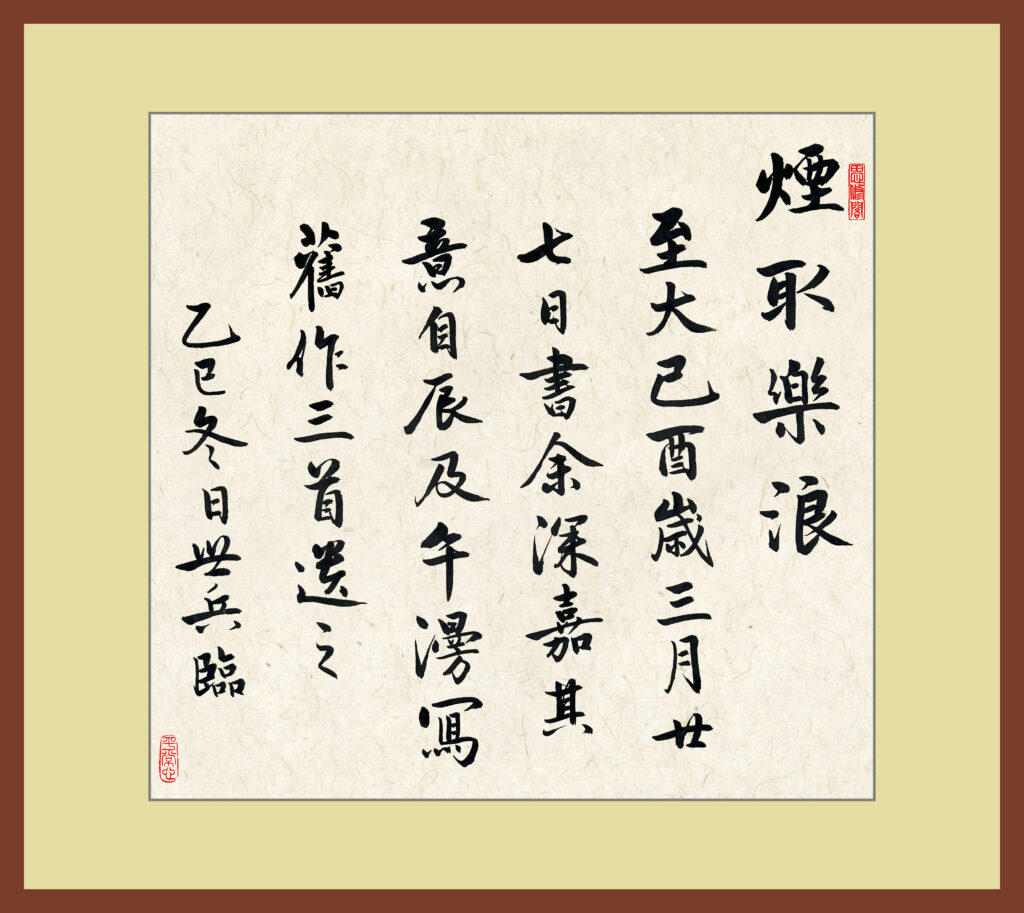 思修閣
煙取樂浪
至大己酉歲三月廿
七日書余深嘉其
意自辰及午漫寫
舊作三首遺之
乙巳冬日世兵臨
平常心